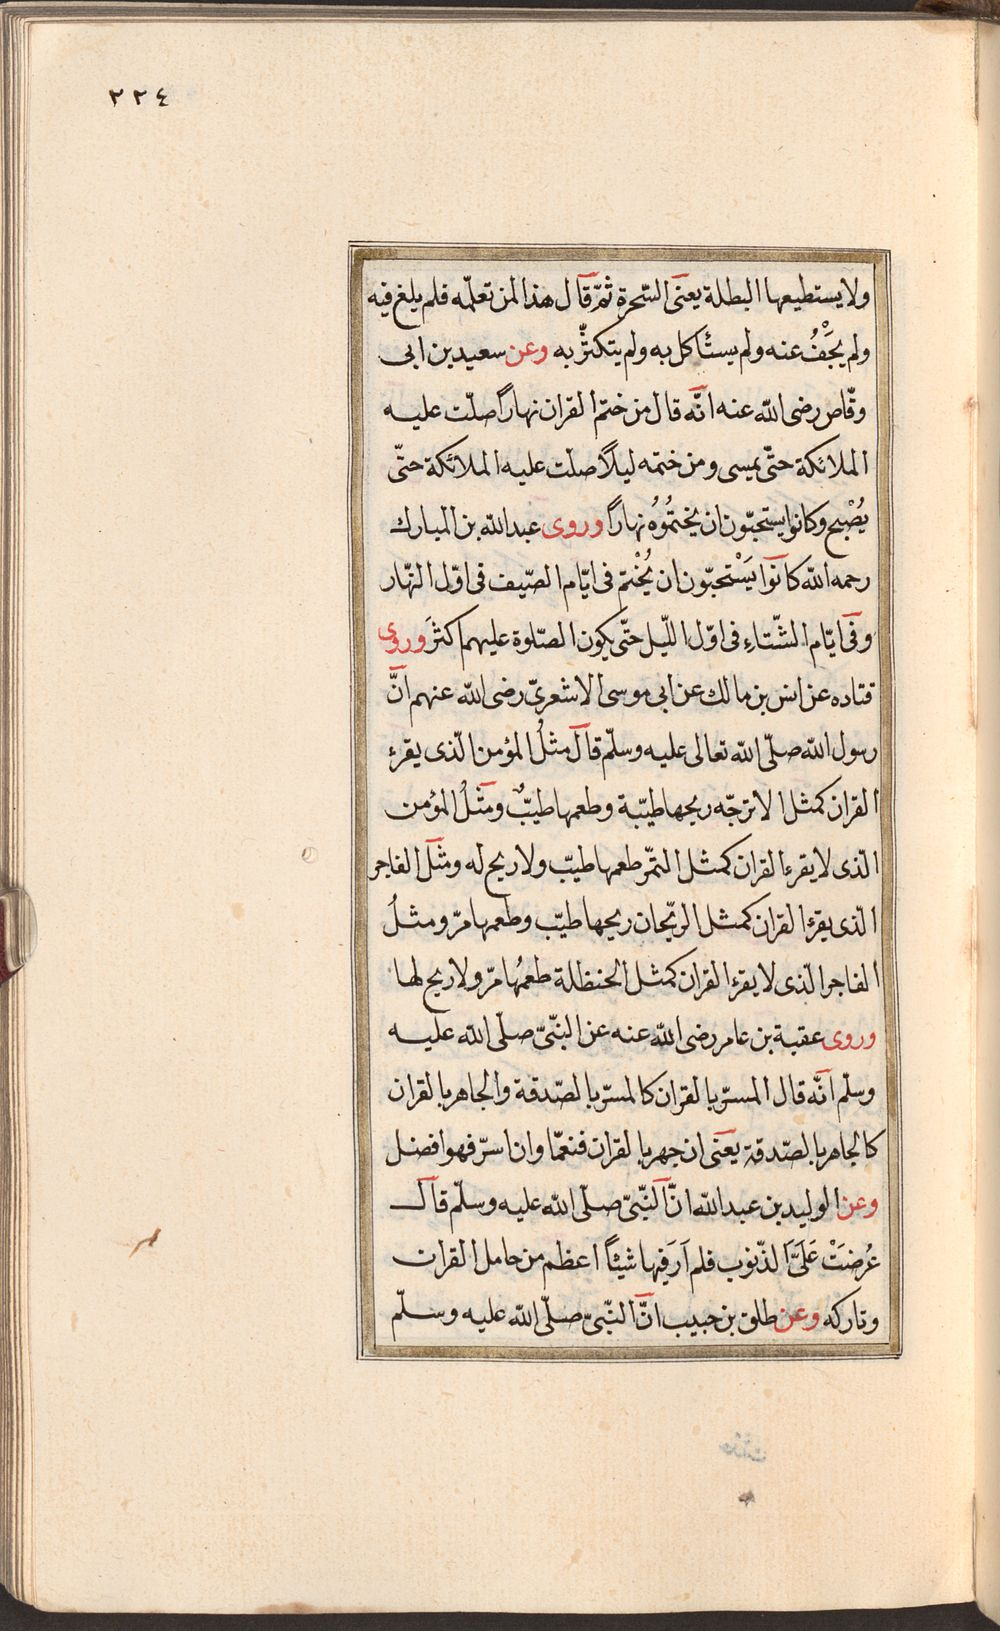 ٢٢٤
ولا يستطيعها البطلة يعنى السّحرة ثمّ قال هذا لمن تعلّمه فلم يلغ فيه
ولم يَجْفُ عنه ولم يستأكل به ولم يتكثّر به وعن سعيد بن ابى
وقّاص رضى اللّه عنه انّه قال من ختم القران نهاراً صلّت عليه
الملائكة حتّى يمسى ومن ختمه ليلاً صلّت عليه الملائكة حتّى
يُصْبح وكانوا يستحبّون ان يختمُوُه نهاراً وروى عبد اللّه بن المبارك
رحمه اللّه كانوا يَسْتحبّون ان يُخْتم فى ايّام الصّيف فى اوّل النّهار
وفى ايّام الشّتاءِ فى اوّل اللّيل حتّى يكون الصّلوة عليهم اكثَر وروى
قتاده عن انس بن مالك عن ابى موسى الاشعرىّ رضى اللّه عنهم انَّ
رسول اللّه صلّى اللّه تعالى عليه وسلّم قال مثلُ المؤمن الّذى يقرء
القران كمثل الاترجّه ريحها طيّبة وطعمها طيّبٌ ومَثلُ المؤمن
الّذى لا يقرء القران كمثل التمّر طعمها طيّب ولا ريح له ومثل الفاجر
الّذى يقرء القران كمثل الريّحان ريحها طيّب وطعمها مرّ ومثلُ
الفاجر الّذى لا يقرء القران كمثل الحنظلة طعمُها مرّ ولا ريح لها
وروى عقبة بن عامر رضى اللّه عنه عن النبّىّ صلّى اللّه عليه
وسلّم انّه قال المسرّ بالقران كالمسرّ بالصّدقة والجاهر بالقران
كالجاهر بالصّدقة يعنى ان جهر بالقران فنعمّا وان اسرّ فهو افضل
وعن الوليد بن عبد اللّه انَّ النبّىّ صلّى اللّه عليه وسلّم قال
عُرضَتْ عَلَىَّ الذّنوب فلم اَرَ فيها شيئاً اعظم من حامل القران
وتاركه وعن طلق بن حبيب انَّ النبّىّ صلّى اللّه عليه وسلّم